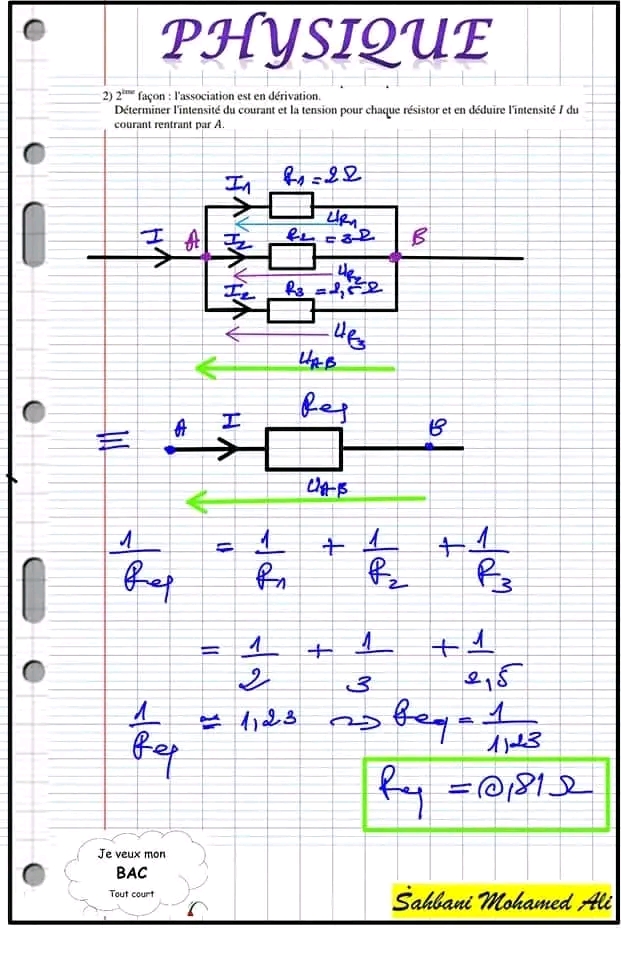 PHYSIQUE
2) 2ème façon : l'association est en dérivation.
Déterminer l'intensité du courant et la tension pour chaque résistor et en déduire l'intensité I du
courant rentrant par A.
I1 R1 = 2Ω
UR1
I A I2 R2 = 3Ω B
UR2
I2 R3 = 2,5Ω
UR3
UAB
≡ A I Req B
UAB
1/Req = 1/R1 + 1/R2 + 1/R3
= 1/2 + 1/3 + 1/2,5
1/Req ≃ 1,23 ⇝ Req = 1/1,23
Req = 0,81Ω
Je veux mon
BAC
Tout court
Sahbani Mohamed Ali